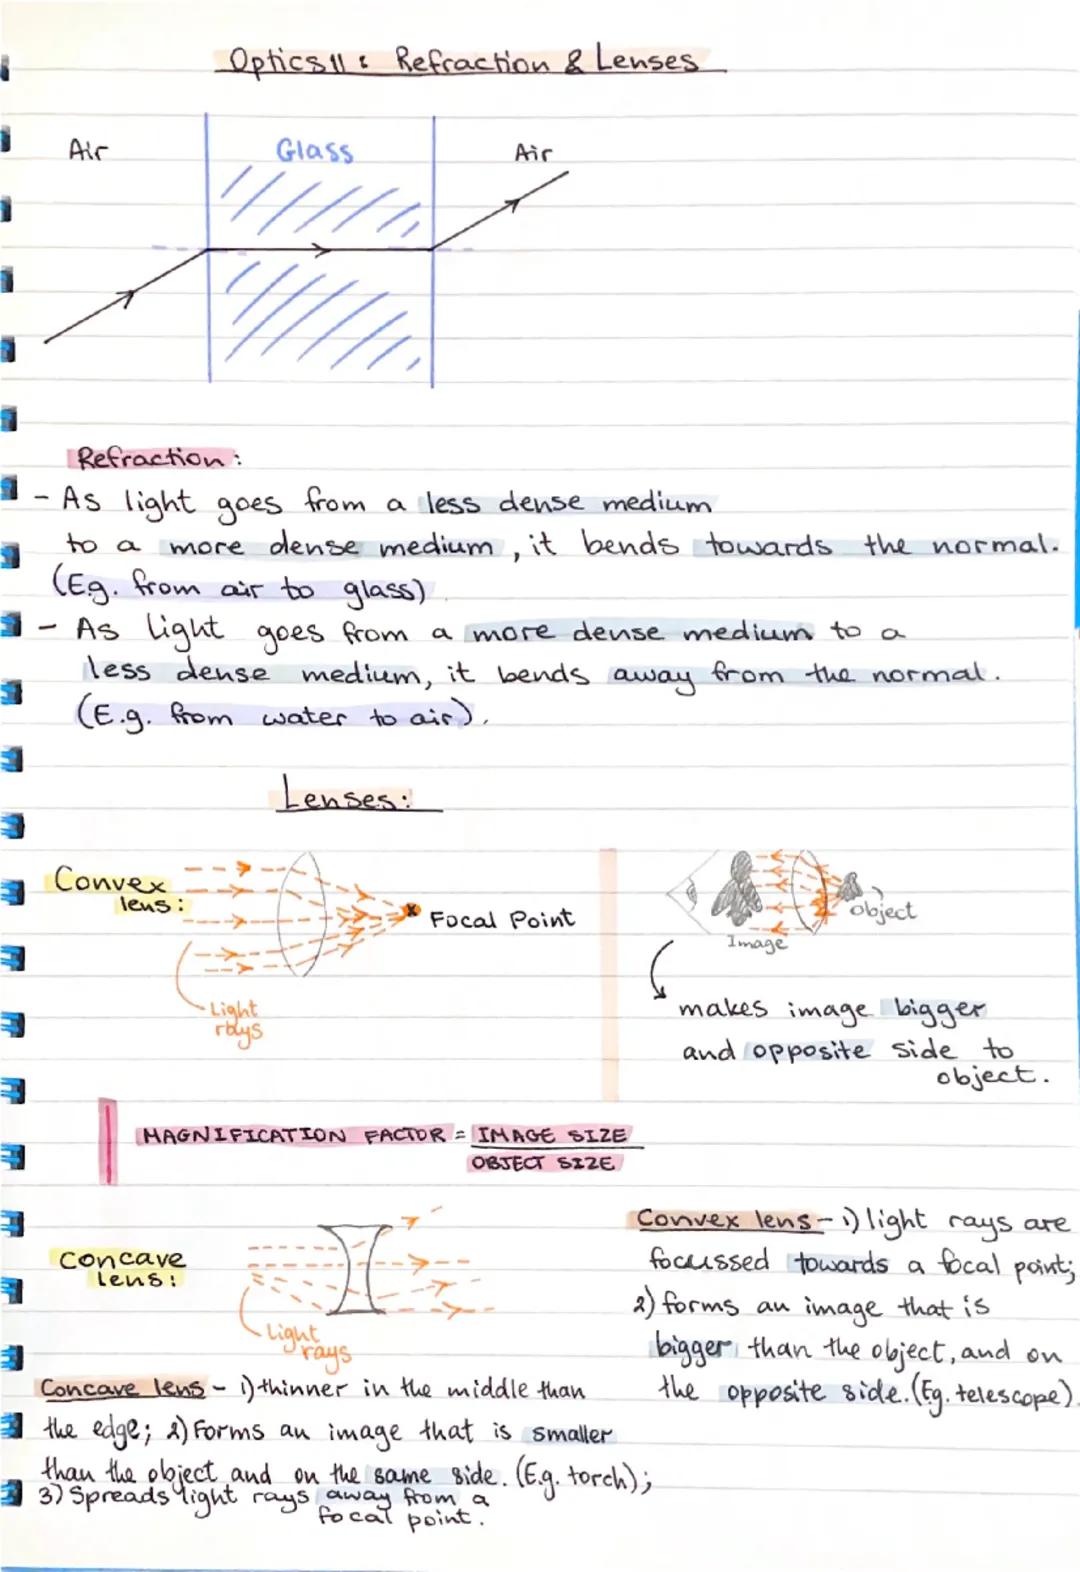 Optics 11 : Refraction & Lenses
Air
Glass
Air
Refraction:
- As light goes from a less dense medium
to a more dense medium, it bends towards the normal.
(Eg. from air to glass)
- As light goes from a more dense medium to a
less dense medium, it bends away from the normal.
(E.g. from water to air).
Lenses:
Convex
lens:
Focal Point
Light
rays
Object
Image
makes image bigger
and opposite side to
object.
MAGNIFICATION FACTOR = IMAGE SIZE
OBJECT SIZE
Concave
lens:
Light
rays
Convex lens - 1) light rays are
focussed towards a focal point;
2) forms an image that is
bigger than the object, and on
the opposite side. (Eg. telescope).
Concave lens - 1) thinner in the middle than
the edge; 2) Forms an image that is smaller
than the object and on the same side. (E.g. torch);
3) Spreads light rays away from a
focal point.